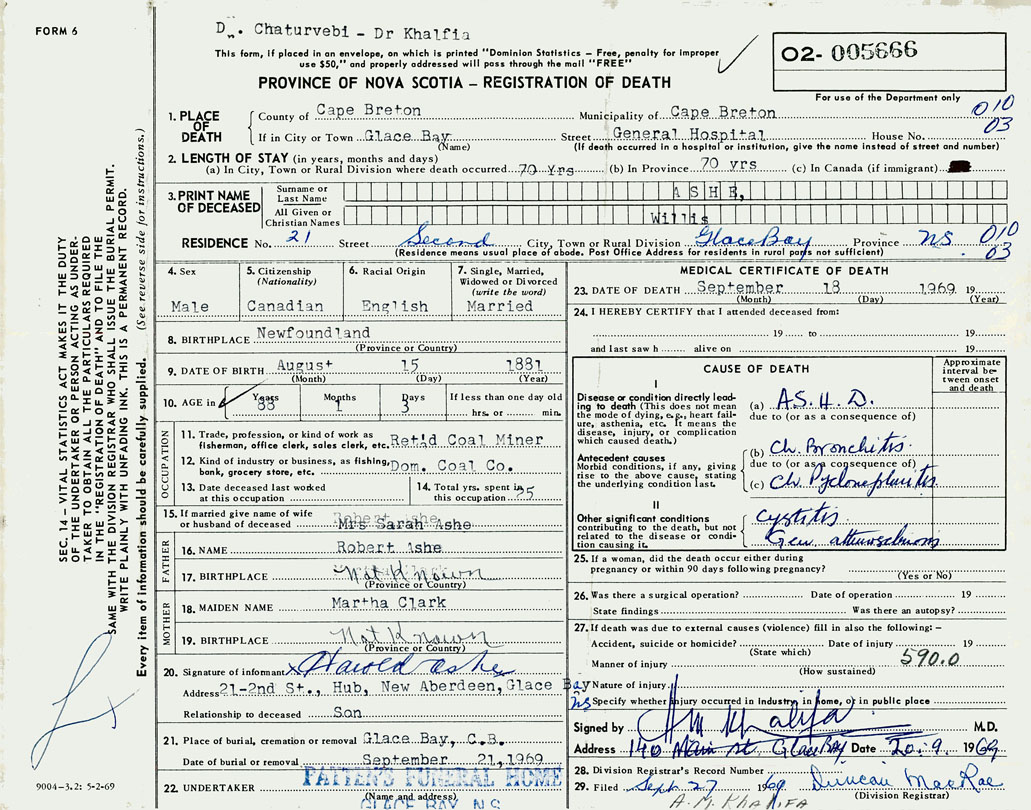 FORM 6
D. Chaturvebi - Dr Khalfia
This form, if placed in an envelope, on which is printed "Dominion Statistics – Free, penalty for improper
use $50," and properly addressed will pass through the mail "FREE"
PROVINCE OF NOVA SCOTIA – REGISTRATION OF DEATH
02- 005666
For use of the Department only
1. PLACE OF DEATH
County of Cape Breton Municipality of Cape Breton 010
If in City or Town Glace Bay Street General Hospital House No. 03
(Name) (If death occurred in a hospital or institution, give the name instead of street and number)
2. LENGTH OF STAY (in years, months and days)
(a) In City, Town or Rural Division where death occurred 70 Yrs (b) In Province 70 yrs (c) In Canada (if immigrant)
3. PRINT NAME OF DECEASED
Surname or Last Name ASHE,
All Given or Christian Names Willis
RESIDENCE No. 21 Street Second City, Town or Rural Division Glace Bay Province NS 010
(Residence means usual place of abode. Post Office Address for residents in rural pays not sufficient) 03
4. Sex
Male
5. Citizenship (Nationality)
Canadian
6. Racial Origin
English
7. Single, Married, Widowed or Divorced (write the word)
Married
8. BIRTHPLACE Newfoundland
(Province or Country)
9. DATE OF BIRTH August 15 1881
(Month) (Day) (Year)
10. AGE in Years 88 Months 1 Days 3 If less than one day old
hrs. or min.
OCCUPATION
11. Trade, profession, or kind of work as
fisherman, office clerk, sales clerk, etc. Ret'd Coal Miner
12. Kind of industry or business, as fishing,
bank, grocery store, etc. Dom. Coal Co.
13. Date deceased last worked
at this occupation
14. Total yrs. spent in
this occupation
15. If married give name of wife
or husband of deceased Mrs Sarah Ashe
FATHER
16. NAME Robert Ashe
17. BIRTHPLACE Not Known
(Province or Country)
MOTHER
18. MAIDEN NAME Martha Clark
19. BIRTHPLACE Not Known
(Province or Country)
20. Signature of informant x Harold Ashe
Address 21-2nd St., Hub, New Aberdeen, Glace Bay
NS
Relationship to deceased Son
21. Place of burial, cremation or removal Glace Bay, C.B.
Date of burial or removal September 21, 1969
22. UNDERTAKER PATTEN'S FUNERAL HOME
(Name and address)
GLACE BAY, N.S.
MEDICAL CERTIFICATE OF DEATH
23. DATE OF DEATH September 18 1969 19
(Month) (Day) (Year)
24. I HEREBY CERTIFY that I attended deceased from:
19 to 19
and last saw h alive on 19
CAUSE OF DEATH
Approximate interval between onset and death
I
Disease or condition directly leading to death (This does not mean the mode of dying, e.g., heart failure, asthenia, etc. It means the disease, injury, or complication which caused death.)
(a) A.S.H.D.
due to (or as a consequence of)
Antecedent causes
Morbid conditions, if any, giving rise to the above cause, stating the underlying condition last.
(b) Ch. Bronchitis
due to (or as a consequence of)
(c) Ch. Pyelonephritis
II
Other significant conditions
contributing to the death, but not related to the disease or condition causing it.
Cystitis
Gen.
25. If a woman, did the death occur either during
pregnancy or within 90 days following pregnancy?
(Yes or No)
26. Was there a surgical operation? Date of operation 19
State findings Was there an autopsy?
27. If death was due to external causes (violence) fill in also the following: –
Accident, suicide or homicide? Date of injury 19
(State which)
Manner of injury 590.0
(How sustained)
Nature of injury
Specify whether injury occurred in industry, in home, or in public place
Signed by A M Khalifa M.D.
Address 140 Main st Glace Bay Date 20.9. 1969
28. Division Registrar's Record Number
29. Filed Sept 27 1969 Duncan MacRae
(Division Registrar)
A.M. KHALIFA
SEC. 14 – VITAL STATISTICS ACT MAKES IT THE DUTY
OF THE UNDERTAKER OR PERSON ACTING AS UNDERTAKER TO OBTAIN ALL THE PARTICULARS REQUIRED
IN THE "REGISTRATION OF DEATH" AND TO FILE THE
SAME WITH THE DIVISION REGISTRAR WHO SHALL ISSUE THE BURIAL PERMIT.
WRITE PLAINLY WITH UNFADING INK. THIS IS A PERMANENT RECORD.
Every item of information should be carefully supplied. (See reverse side for instructions.)
9004-3.2: 5-2-69